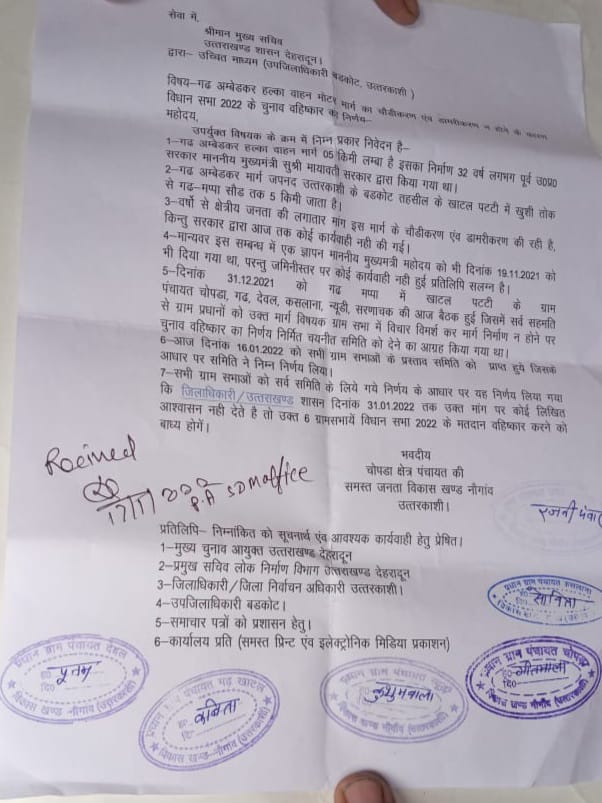 सेवा में,
श्रीमान मुख्य सचिव
उत्तराखण्ड शासन देहरादून।
द्वारा– उच्चित माध्यम (उपजिलाधिकारी बडकोट, उत्तरकाशी )
विषय–गढ अम्बेडकर हल्का वाहन मोटर मार्ग का चौडीकरण एंव डामरीकरण न होने के कारण
विधान सभा 2022 के चुनाव वहिष्कार का निर्णय–
महोदय,
उपर्युक्त विषयक के क्रम में निम्न प्रकार निवेदन है–
1–गढ अम्बेडकर हल्का वाहन मार्ग 05 किमी लम्बा है इसका निर्माण 32 वर्ष लगभग पूर्व उ0प्र0
सरकार माननीय मुख्यमंत्री सुश्री मायावती सरकार द्वारा किया गया था।
2–गढ अम्बेडकर मार्ग जपनद उत्तरकाशी के बडकोट तहसील के खाटल पटटी में खुशी तोक
से गढ–मप्पा सौड तक 5 किमी जाता है।
3–वर्षो से क्षेत्रीय जनता की लगातार मांग इस मार्ग के चौडीकरण एंव डामरीकरण की रही है,
किन्तु सरकार द्वारा आज तक कोई कार्यवाही नही की गई।
4–मान्यवर इस सम्बन्ध में एक ज्ञापन माननीय मुख्यमंत्री महोदय को भी दिनांक 19.11.2021 को
भी दिया गया था, परन्तु जमिनीस्तर पर कोई कार्यवाही नही हुई प्रतिलिपि सलग्न है।
5–दिनांक 31.12.2021 को गढ मप्पा में खाटल पटटी के ग्राम
पंचायत चोपडा, गढ, देवल, कसलाना, न्यूडी, सरणाचक की आज बैठक हुई जिसमें सर्व सहमति
से ग्राम प्रधानों को उक्त मार्ग विषयक ग्राम सभा में विचार विमर्श कर मार्ग निर्माण न होने पर
चुनाव वहिष्कार का निर्णय निर्मित चयनीत समिति को देने का आग्रह किया गया था।
6–आज दिनांक 16.01.2022 को सभी ग्राम सभाओं के प्रस्ताव समिति को प्राप्त हुये जिसके
आधार पर समिति ने निम्न निर्णय लिया।
7–सभी ग्राम सभाओं को सर्व समिति के लिये गये निर्णय के आधार पर यह निर्णय लिया गया
कि जिलाधिकारी/उत्तराखण्ड शासन दिनांक 31.01.2022 तक उक्त मांग पर कोई लिखित
आश्वासन नही देते है तो उक्त 6 ग्रामसभायें विधान सभा 2022 के मतदान वहिष्कार करने को
बाध्य होगें।
भवदीय
चोपडा क्षेत्र पंचायत की
समस्त जनता विकास खण्ड नौगांव
उत्तरकाशी।
Recived
P.A SDM office
प्रतिलिपि– निम्नांकित को सूचनार्थ एंव आवश्यक कार्यवाही हेतु प्रेषित।
1–मुख्य चुनाव आयुक्त उत्तराखण्ड देहरादून
2–प्रमुख सचिव लोक निर्माण विभाग उत्तराखण्ड देहरादून
3–जिलाधिकारी/जिला निर्वाचन अधिकारी उत्तरकाशी।
4–उपजिलाधिकारी बडकोट।
5–समाचार पत्रों को प्रशासन हेतु।
6–कार्यालय प्रति (समस्त प्रिन्ट एंव इलेक्ट्रोनिक मिडिया प्रकाशन)
प्रधान ग्राम पंचायत कसलाना
सविता
प्रधान ग्राम पंचायत देवल
पूनम
विकास खण्ड नौगांव (उत्तरकाशी)
प्रधान ग्राम पंचायत गढ खाटल
कविता
विकास खण्ड–नौगांव (उत्तरकाशी)
प्रधान ग्राम पंचायत
कुसुमबाला
विकास खण्ड नौगांव
प्रधान ग्राम पंचायत चोपडा
गीतमाला
विकास खण्ड नौगांव (उत्तरकाशी)